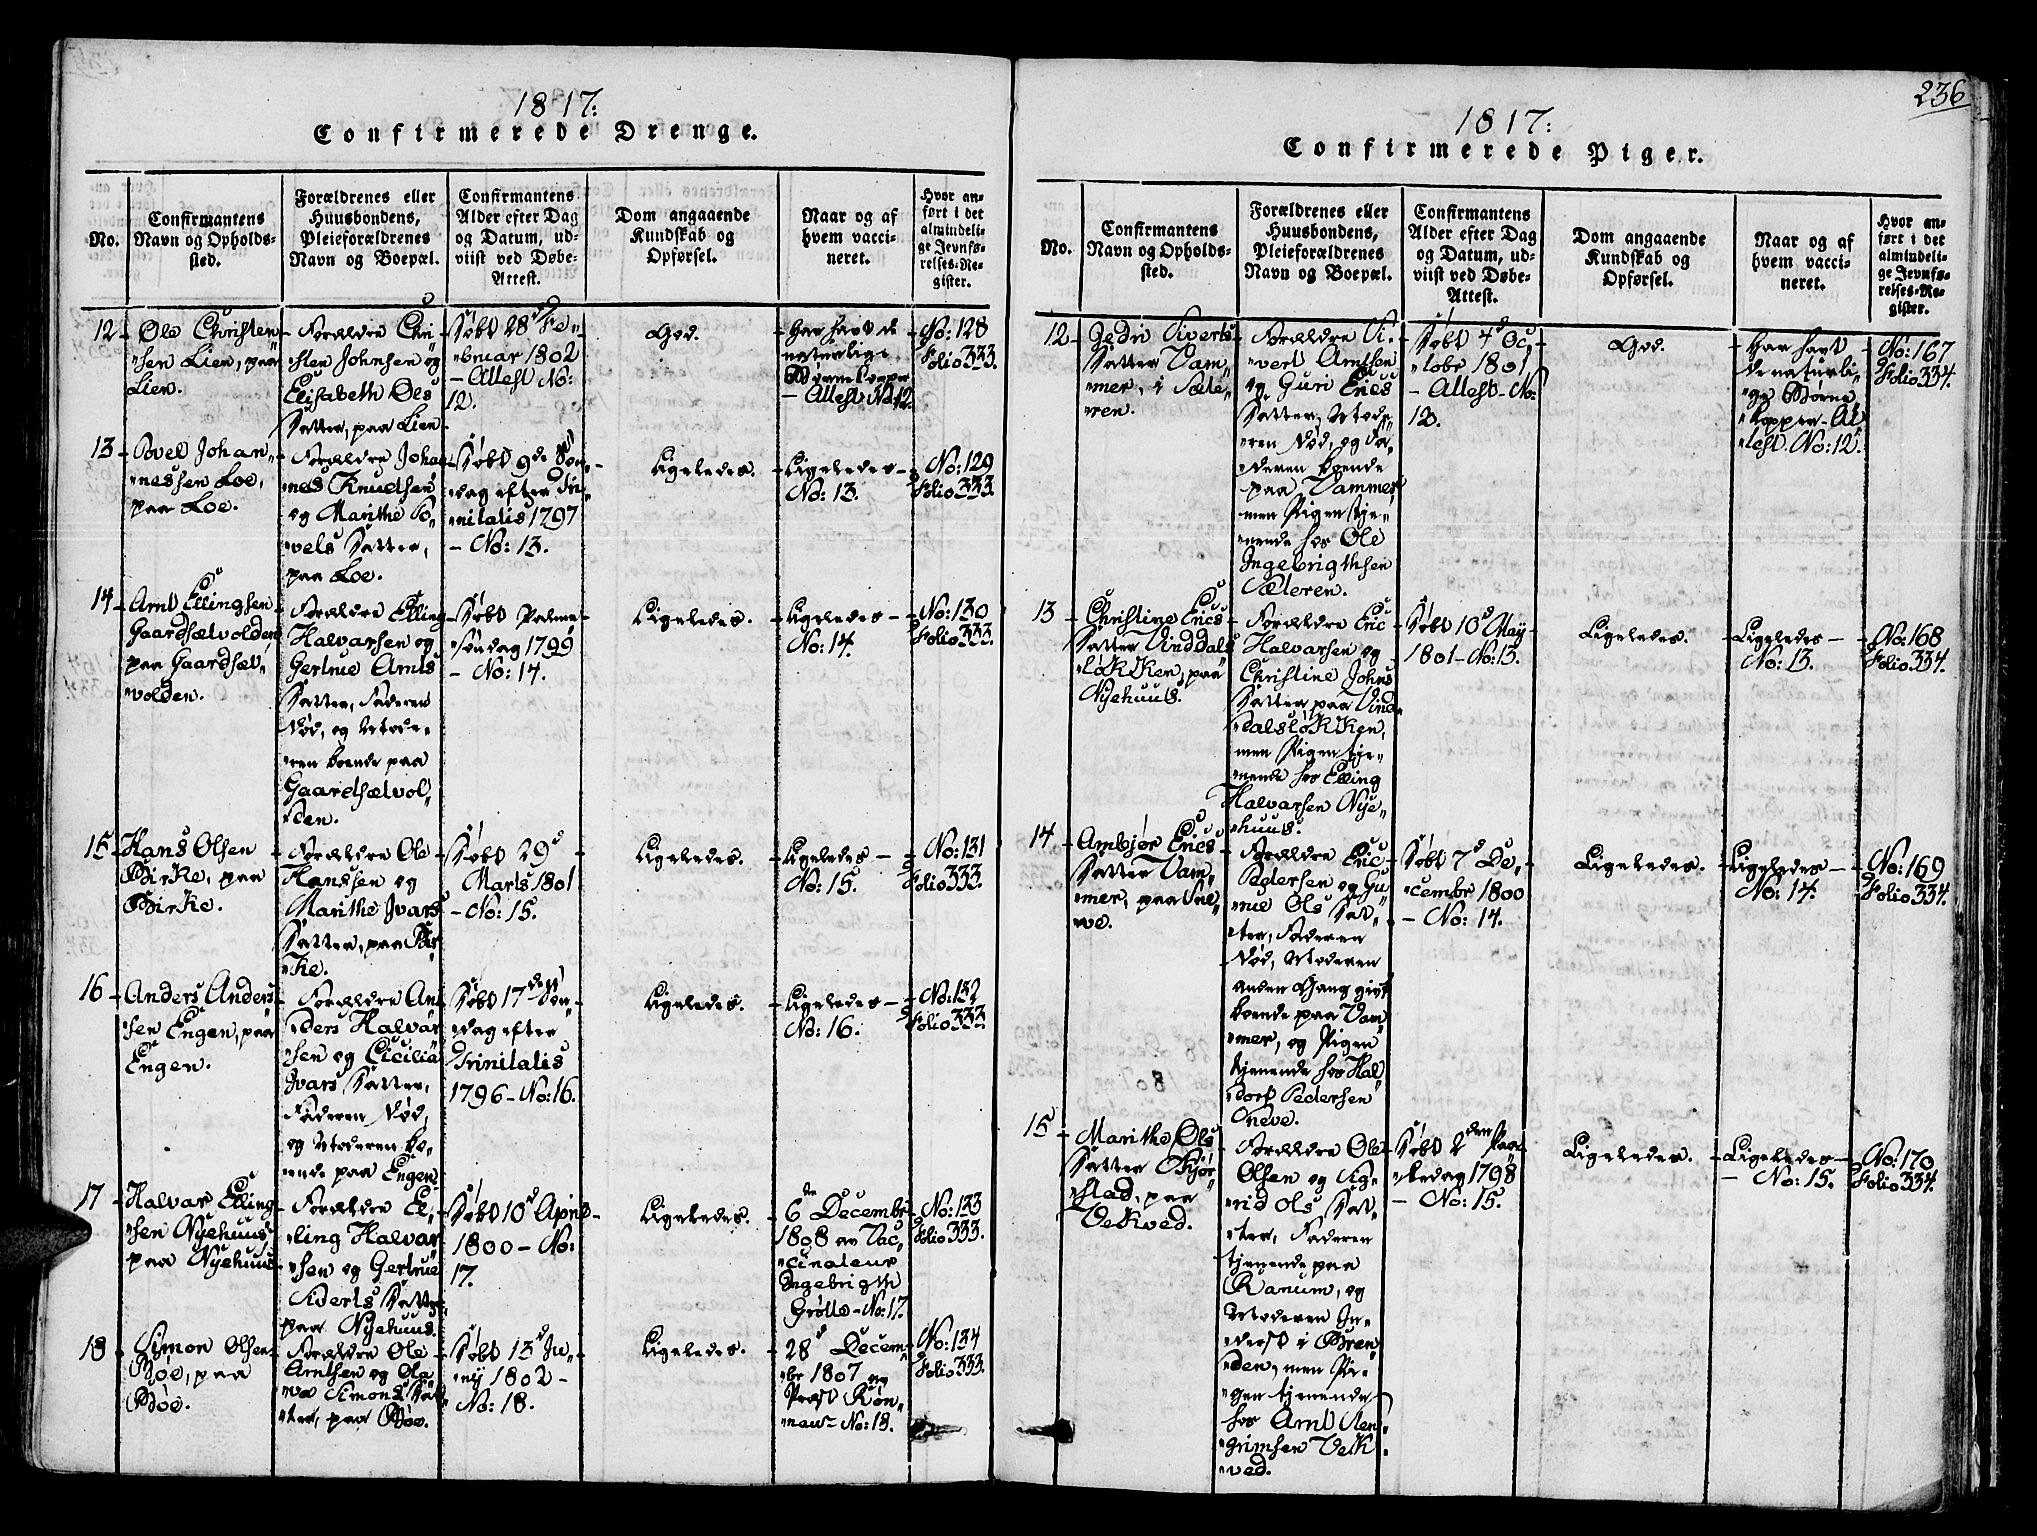 1817:
Confirmerede Drenge.
No.
Confirmantens
Navn og Opholds-
sted.
Forældrenes eller
Huusbondens,
Pleieforældrenes
Navn og Boepæl.
Confirmantens
Alder efter Dag
og Datum, ud-
viist ved Døbe-
Attest.
Dom angaaende
Kundskab og
Opførsel.
Naar og af
hvem vacci-
neret.
Hvor an-
ført i det
almindeli-
ge Jevnfø-
relses-Re-
gister.
12
Ole Christen
sen Lien, paa
Lien.
Forældre Chri
sten Johnsen og
Elisabeth Ols
Datter, paa Lien
Døbt 28d Fe
bruar 1802
Attest No:
12.
God.
Har havt de
naturlige
Børnekopper
Attest No 12.
No: 128
Folio 333.
13
Povel Johan
nessen Loe,
paa Loe.
Forældre Johan
nes Knudsen
og Marithe Po
vels Datter,
paa Loe.
Døbt 9de Søn
dag efter Tri
nitatis 1797
No: 13.
Ligeledes.
Ligeledes
No: 13.
No: 129
Folio 333.
14
Arnt Ellingsen
Gaardsætvolden
paa Gaardsæt
volden.
Forældre Elling
Halvarsen og
Gertrue Arnts
Datter, Faderen
død, og Mode
ren boende paa
Gaardsætvol
den.
Døbt Palme
Søndag 1799
No: 14.
Ligeledes.
Ligeledes
No: 14.
No: 130
Folio 333.
15
Hans Olsen
Birke, paa
Birke.
Forældre Ole
Hanssen og
Marithe Ivars
Datter, paa Bir
ke.
Døbt 29d
Marts 1801
No: 15.
Ligeledes.
Ligeledes
No: 15.
No: 131
Folio 333.
16
Anders Anders
sen Engen, paa
Engen.
Forældre An
ders Halvar
sen og Cicilia
Ivars Datter,
Faderen død,
og Moderen bo
ende paa Engen
Døbt 17de Søn
dag efter
Trinitatis
1796 - No: 16.
Ligeledes.
Ligeledes
No: 16.
No: 132
Folio 333.
17
Halvar Elling
sen Nyehuus,
paa Nyehuus
Forældre El
ling Halvar
sen og Gertrue
Siverts Datter
paa Nyehuus.
Døbt 10d April
1800 - No:
17.
Ligeledes.
6de Decembr
1808 av Vac
cinateur
Ingebrigth
Grølls - No: 17.
No: 133
Folio 333.
18
Simon Olsen
Bøe, paa
Bøe.
Forældre Ole
Arntsen og Ole
va Simons Dat
ter, paa Bøe.
Døbt 13d Ju
ny 1802 -
No: 18.
Ligeledes.
28d Decem
br 1807 av
Præst Røn
nau - No: 18.
No: 134
Folio 333.
236
1817:
Confirmerede Piger.
No.
Confirmantens
Navn og Opholds-
sted.
Forældrenes eller
Huusbondens,
Pleieforældrenes
Navn og Boepæl.
Confirmantens
Alder efter Dag
og Datum, ud-
viist ved Døbe-
Attest.
Dom angaaende
Kundskab og
Opførsel.
Naar og af
hvem vacci-
neret.
Hvor an-
ført i det
almindeli-
ge Jevnfø-
relses-Re-
gister.
12
Siverts
Datter Vam
mer, i Sæte
ren.
Forældre Si
vert Arntsen
og Guri Erics
Datter, Mode
ren død, og Fa
deren boende
paa Vammer
men Pigen tje
nende hos Ole
Ingebrigthsen
Sæteren.
Døbt 4d Oc
tobr 1801
Attest - No:
12.
God.
Har havt
de naturli
ge Børne
kopper - At
test. No: 12.
No: 167
Folio 334.
13
Christine Erics
Datter Vinddals
løkken, paa
Nyehuus.
Forældre Eric
Halvarsen og
Christine Johns
Datter, paa Vind
dalsløkken,
men Pigen tje
nende hos Elling
Halvarsen Nye
huus.
Døbt 10d May
1801 - No: 13.
Ligeledes.
Ligeledes
No: 13.
No: 168
Folio 334.
14
Ambjør Erics
Datter Vam
mer, paa Sne
ve.
Forældre Eric
Pedersen og Gu
rue Ols Dat
ter, Faderen
død, Moderen
anden Gang givt
boende paa Vam
mer, og Pigen
tjenende hos Hal
dors Pedersen
Sneve.
Døbt 7d De
cembr 1800
No: 14.
Ligeledes.
Ligeledes
No: 14.
No: 169
Folio 334.
15
Marithe Ols
Datter Skjør
stad, paa
Vekved.
Forældre Ole
Olsen og Sig
rid Ols Dat
ter, Faderen
tjenende paa
Ranum, og
Moderen In
derst i Bren
den, men Pi
gen tjenende
hos Arnt Sten
grimsen Vek
ved.
Døbt 2den Paa
skedag 1798
No: 15.
Ligeledes.
Ligeledes
No: 15.
No: 170
Folio 334.